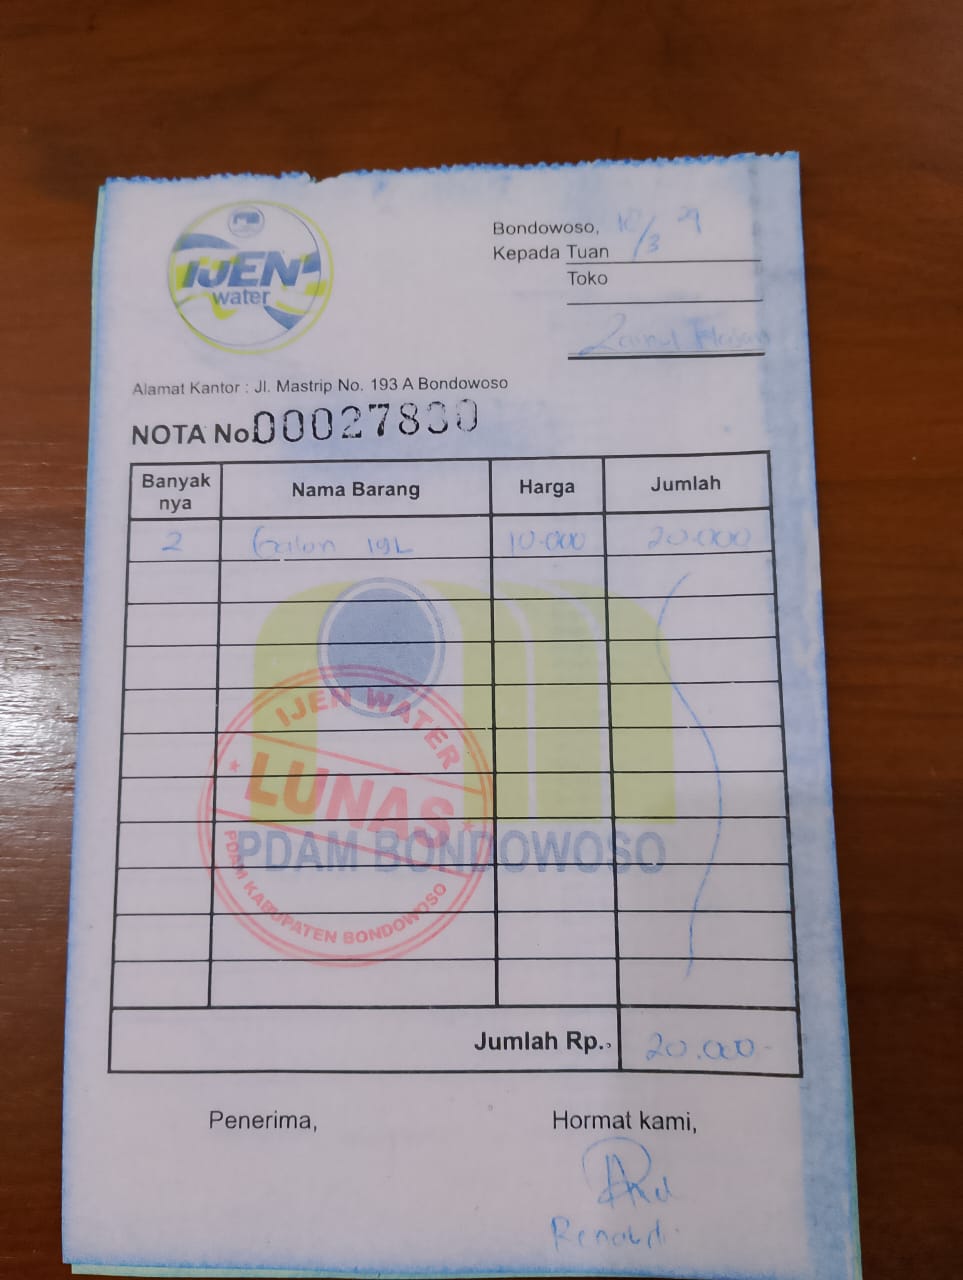 IJEN
water
Bondowoso,
Kepada Tuan
Toko
Alamat Kantor : Jl. Mastrip No. 193 A Bondowoso
NOTA No. 00027830
Banyak nya Nama Barang Harga Jumlah
2 Galon 19L 10.000 20.000
IJEN WATER
LUNAS
PDAM KABUPATEN BONDOWOSO
PDAM BONDOWOSO
Jumlah Rp. 20.000
Penerima, Hormat kami,
Renaldi